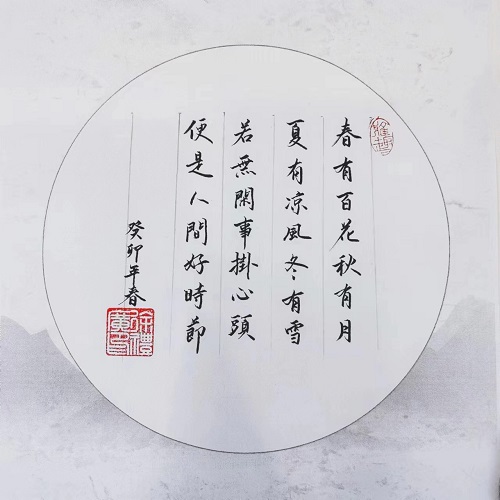 春有百花秋有月
夏有凉風冬有雪
若無閑事掛心頭
便是人間好時節
癸卯年春